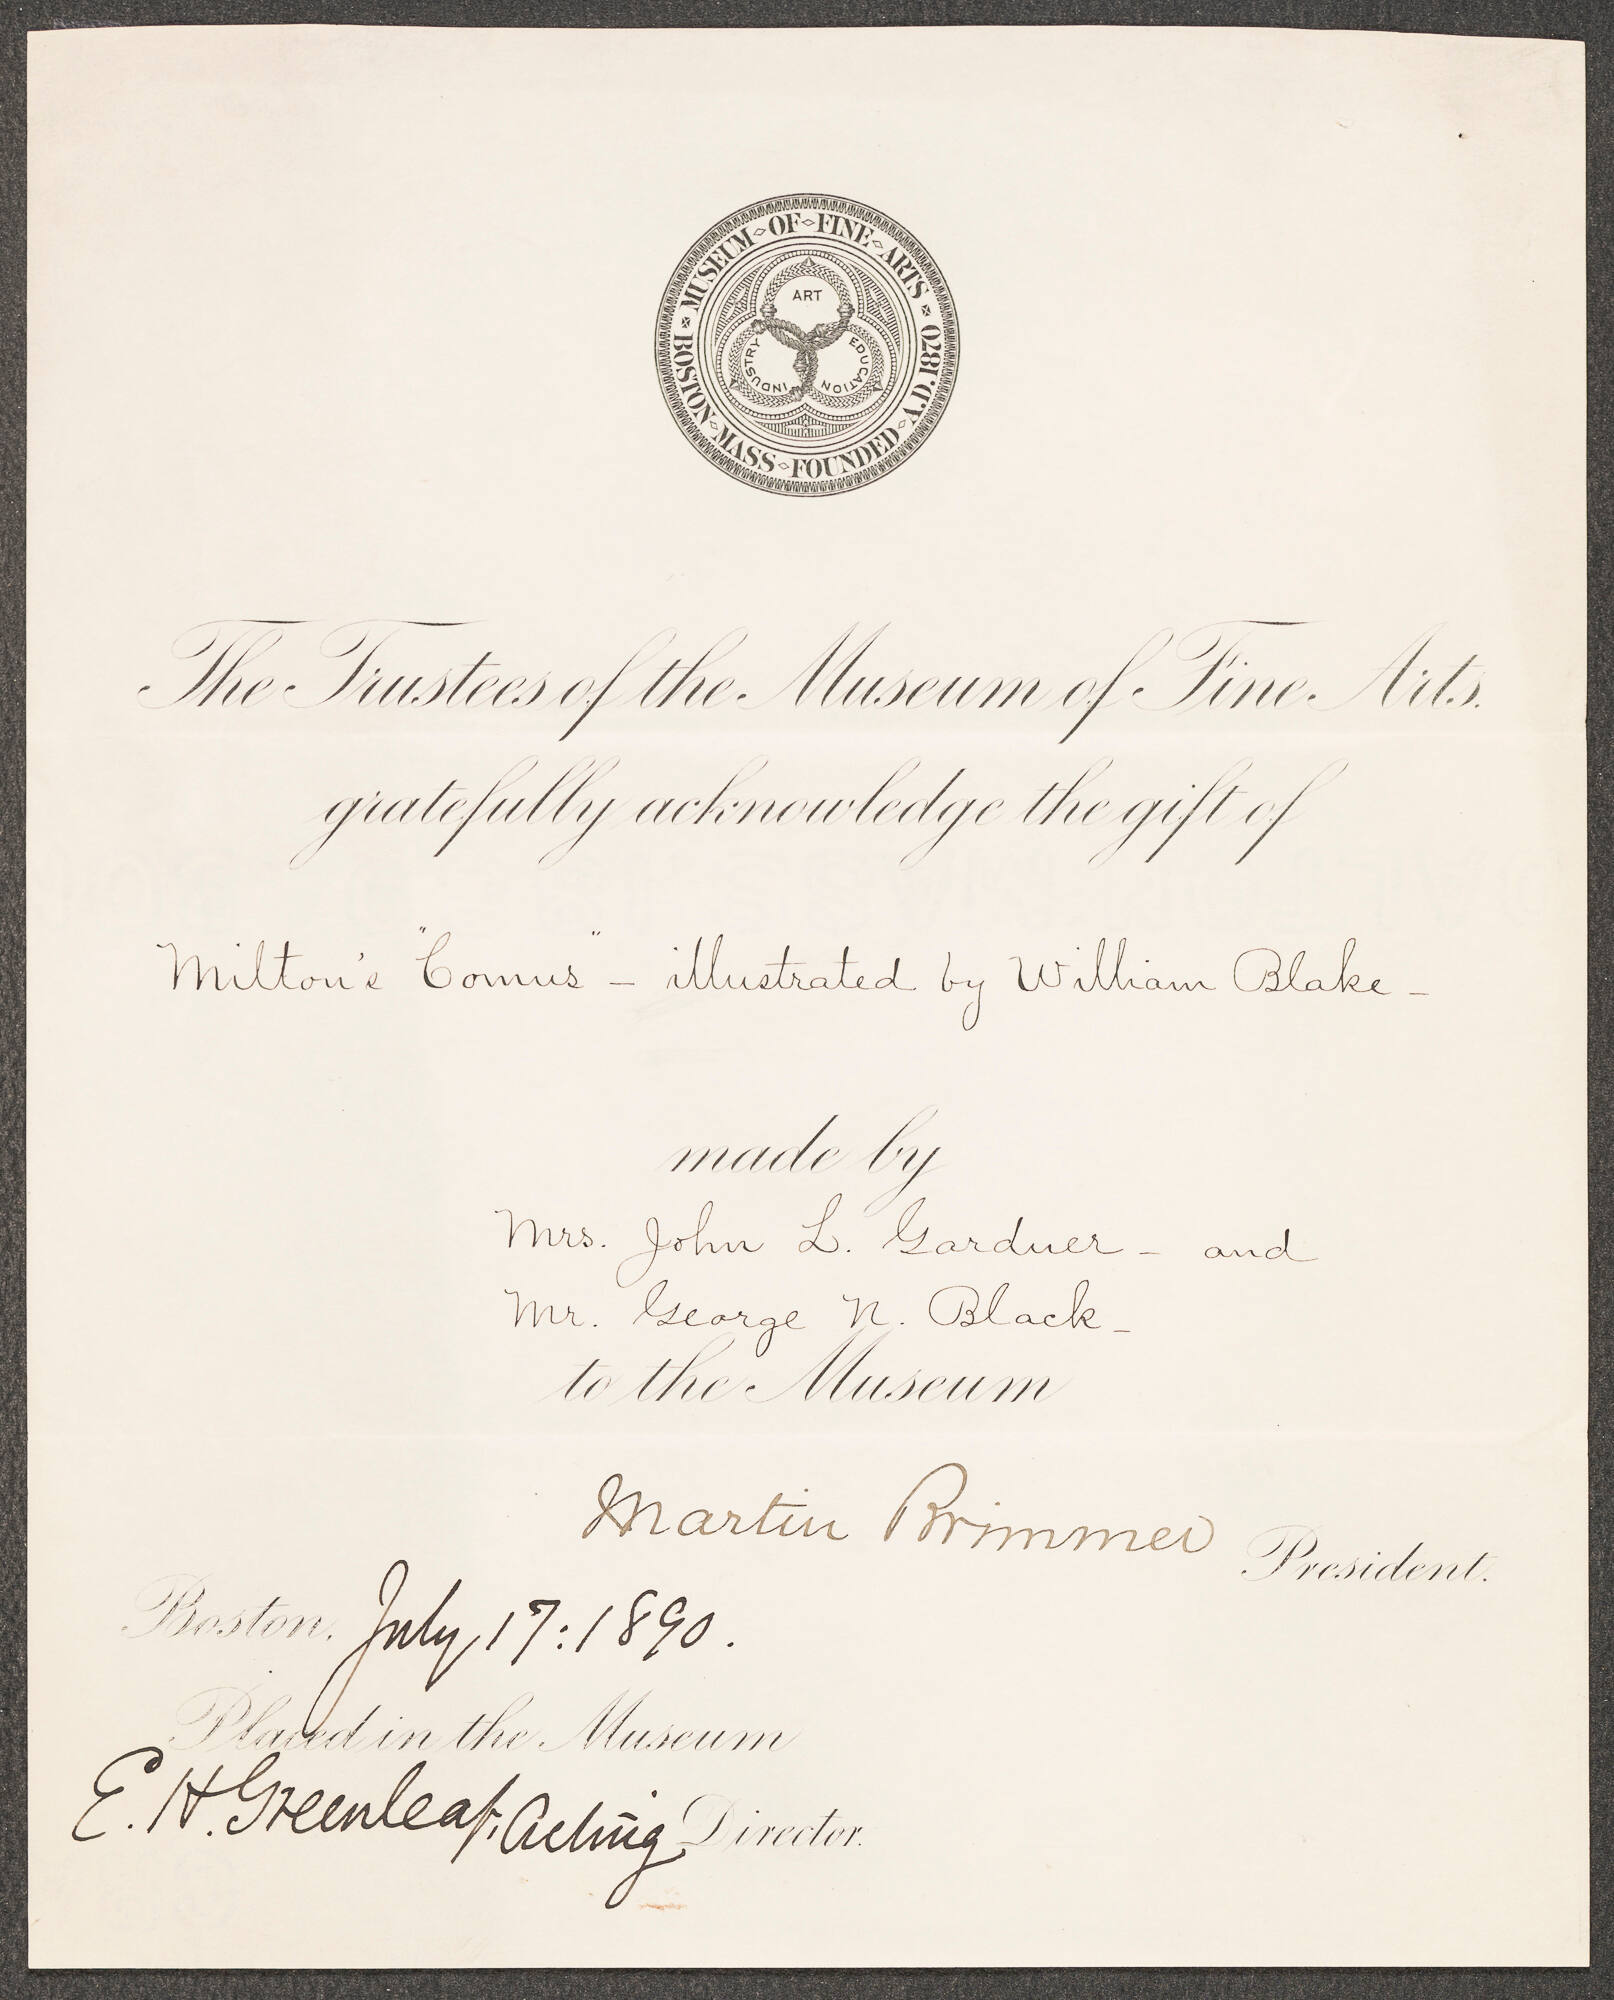 MUSEUM OF FINE ARTS
BOSTON MASS FOUNDED A.D. 1870
ART
INDUSTRY
EDUCATION
The Trustees of the Museum of Fine Arts.
gratefully acknowledge the gift of
Milton's "Comus" – illustrated by William Blake –
made by
Mrs. John L. Gardner – and
Mr. George N. Black –
to the Museum
Martin Brimmer President.
Boston. July 17: 1890.
Placed in the Museum
E. H. Greenleaf, Acting Director.